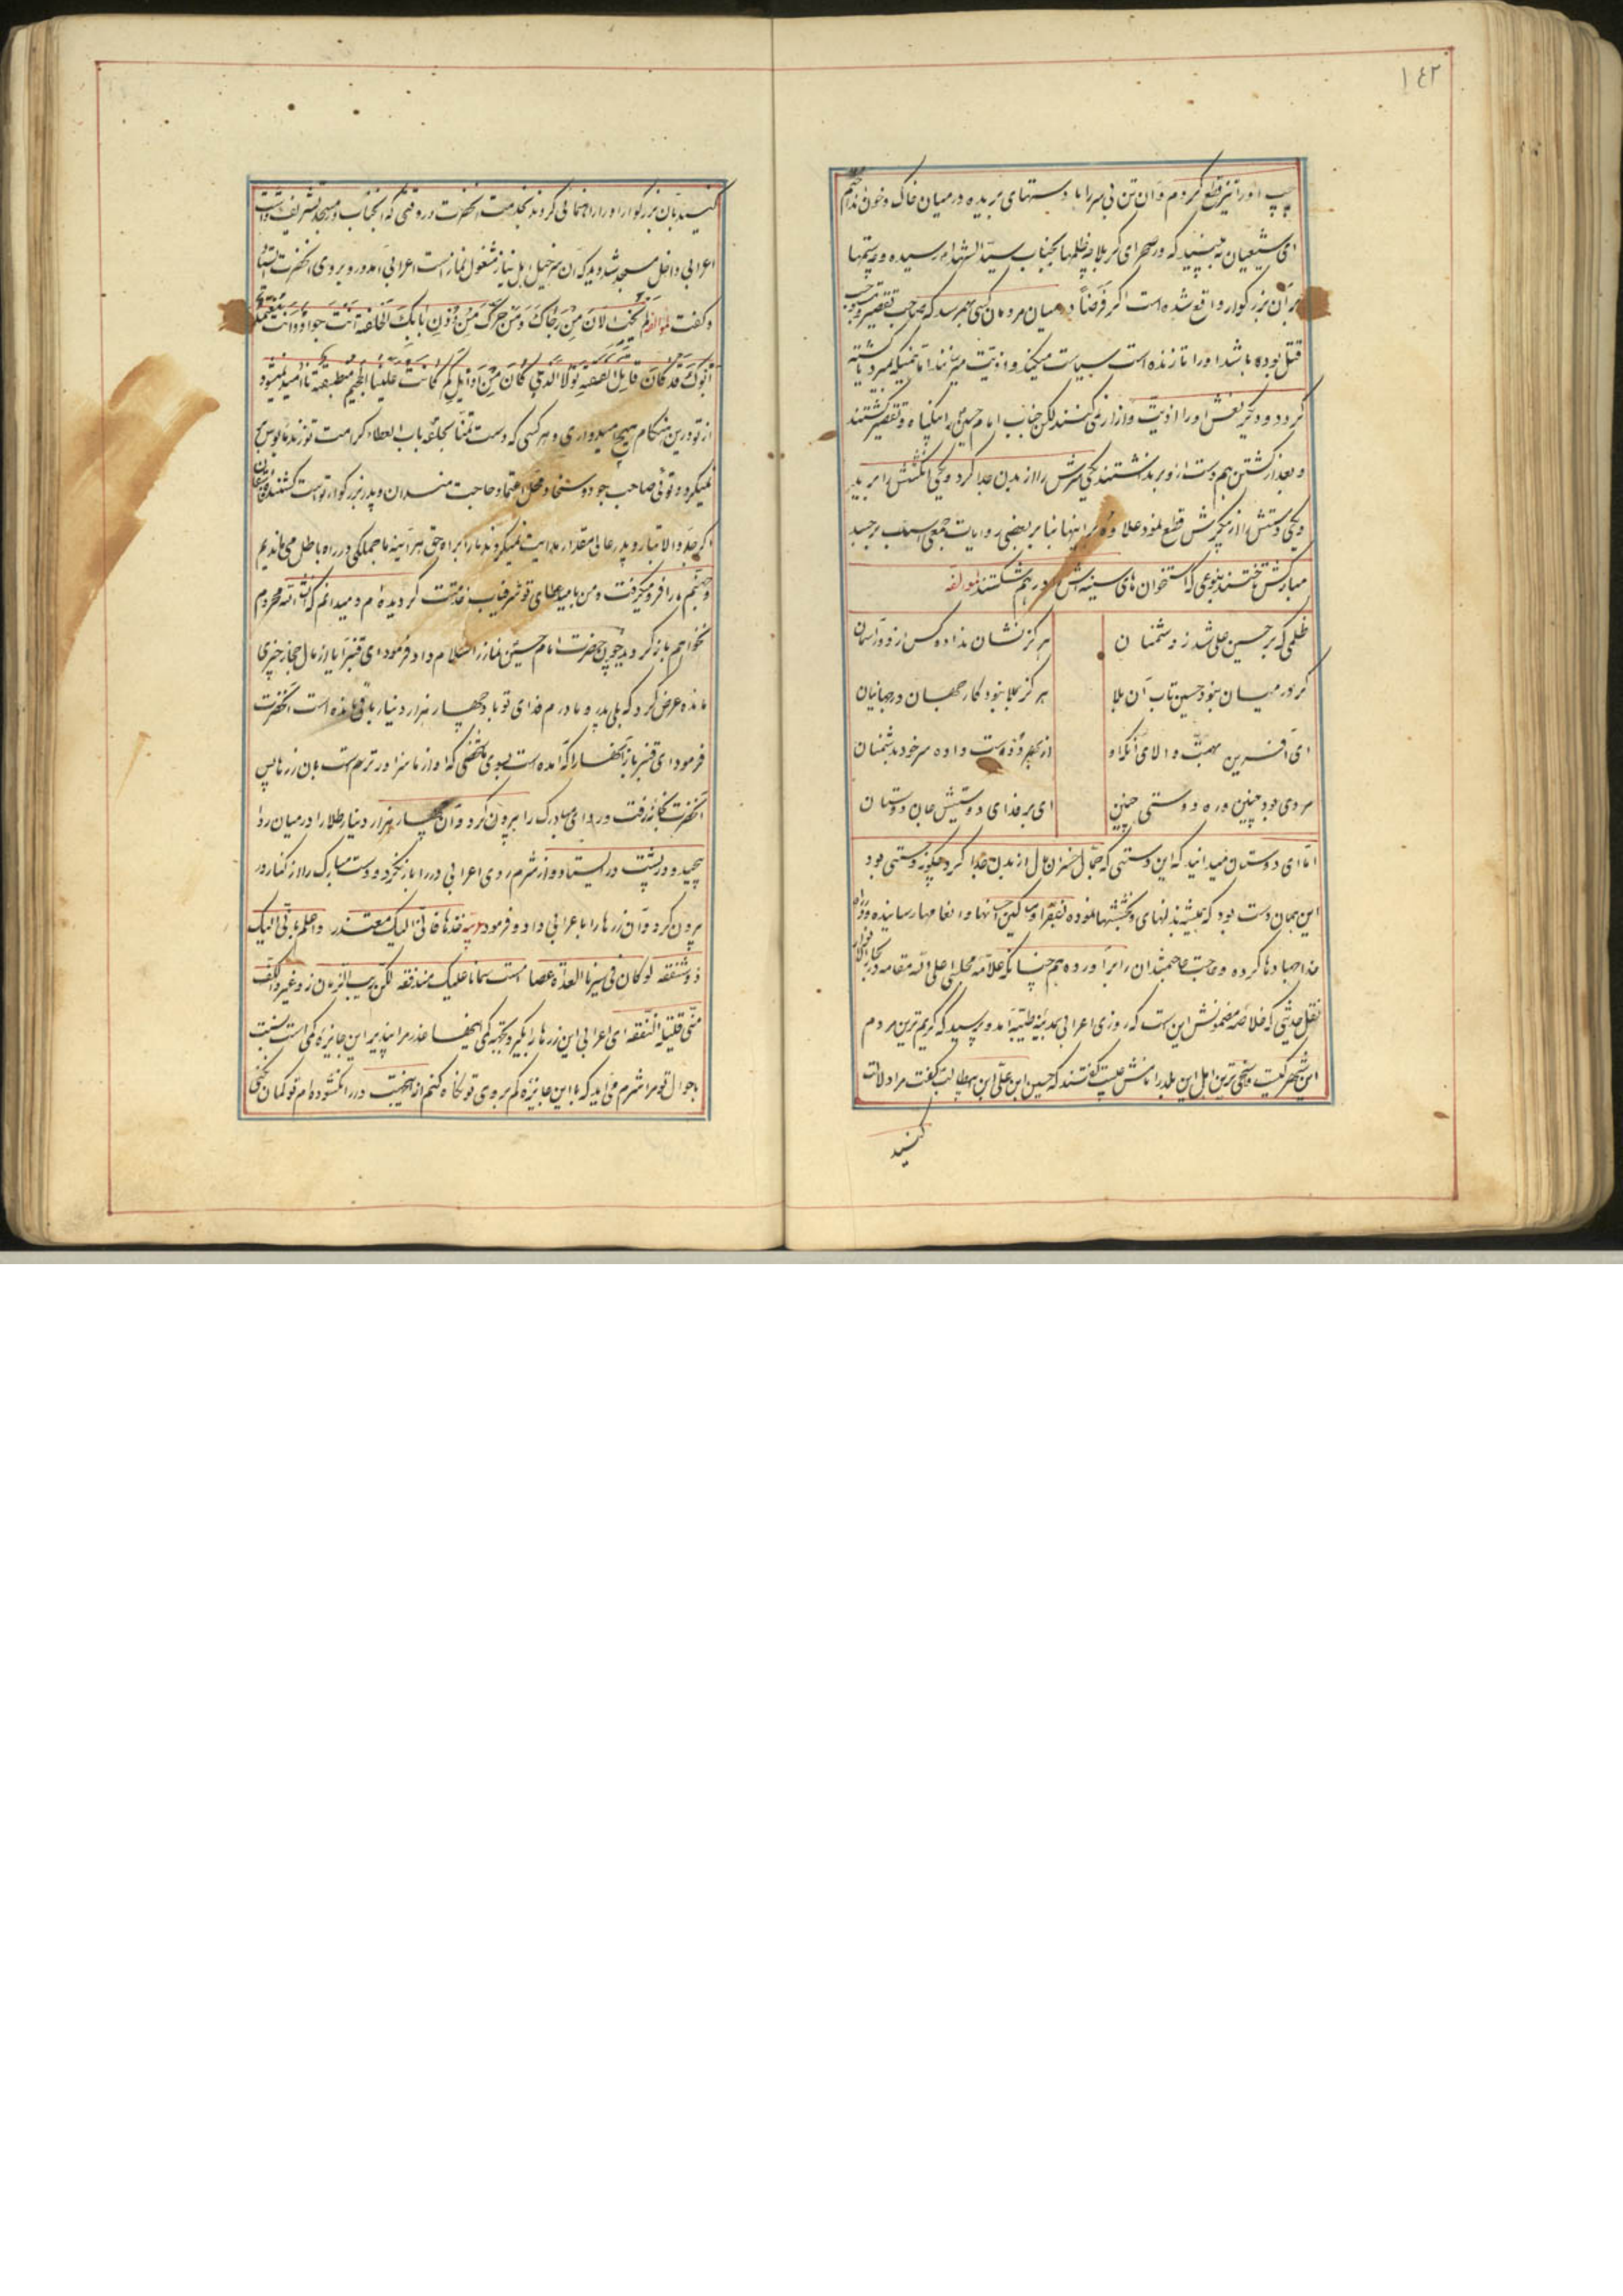 ١٤٢
چپ او را نیز قطع کردم و آن تن بی سر را با دستهای بریده در میان خاک و خون انداختم
ای شیعیان به بینید که در صحرای کربلا چه ظلمها بجناب سید الشهداء رسیده و چه ستمها
بر آن بزرگوار واقع شده است اگر فرضاً در میان مردمان کسی بهم رسد که صاحب تقصیر و موجب
قتل بوده باشد او را تا زنده است سیاست میکنند و اذیت میرسانند اما همینکه مرد یا کشته
گردد دیگر نعش او را اذیت و آزار نمی کنند لکن جناب امام حسین را بیگناه و تقصیر کشتند
و بعد از کشتن هم دست از او بر نداشتند یکی سرش را از بدن جدا کرد و یکی انگشتش را برید
و یکی دستش را از پیکرش قطع نمود علاوه بر اینها بنا بر بعضی روایات جمعی اسب بر جسد
مبارکش تاختند بنوعی که استخوان های سینه اش در هم شکستند لمؤلفه
ظلمی که بر حسین علی شد ز دشمنان هرگز نشان نداده کس از دور آسمان
گر در میان نبود حسین تاب آن بلا هرگز بلا نبود کار جهان در جهانیان
ای آفرین بهمت والای آنکه او از بهر دوست داده سر خود بدشمنان
مردی بود چنین در ره دوستی چنین ای بر فدای دوستیش جان دوستان
اما ای دوستان میدانید که این دستی که جمال خسران مال از بدن جدا کرد چگونه دستی بود
این همان دست بود که همیشه بذلهای و بخششها نموده بفقرا و مساکین احسانها و انعامها رسانیده و در راه
خدا جهادها کرده و حاجت حاجتمندان را برآورده هم چنانکه علامه مجلسی اعلی الله مقامه در بحار الانوار
نقل حدیثی که خلاصه مضمونش این است که روزی اعرابی بمدینه طیبه آمد و پرسید که کریم ترین مردم
این شهر کیست و سخی ترین اهل این بلد را نامش چیست گفتند که حسین ابن علی ابن ابیطالب گفت مرا دلالت
کنید
کنید بآن بزرگوار او را راهنمائی کردند بخدمت آنحضرت در وقتی که آنجناب در مسجد تشریف داشت
اعرابی داخل مسجد شد دید که آن سرخیل اهل نیاز مشغول نماز است اعرابی آمد و رو بروی آنحضرت ایستاد
و گفت لمؤلفه لم یخب الان من رجاک و من حرک من دون بابک الحلقه انت جواد و انت معتمد
ابوک قد کان قاتل الفسقه لولا الذی کان من اوایلکم کانت علینا الجحیم منطبقه ناامید نمیشود
از تو درین هنگام هیچ امیدواری و هر کسی که دست تمنا بحلقه باب العطاء کرامت تو زند مأیوس بر
نمیگردد توئی صاحب جود و سخا و محل اعتماد حاجت مندان و پدر بزرگوار تو است کشنده فاسقان
گر جد والاتبار و پدر عالی مقدار هدایت نمیکردند ما را براه حق هر آینه ما جملگی در راه باطل می ماندیم
و جهنم ما را فرو میگرفت و من بامید عطای تو شرفیاب خدمتت گردیده ام و میدانم که انشاء الله محروم
نخواهم باز گردید چون حضرت امام حسین نماز را سلام داد فرمود ای قنبر آیا از مال حجاز چیزی
مانده عرض کرد که بلی پدر و مادرم فدای تو باد چهار هزار دینار باقی مانده است آنحضرت
فرمود ای قنبر بیار آنها را که آمده است بسوی ما شخصی که او از ما سزاوارتر است بآن زرها پس
آنحضرت بخانه رفت و ردای مبارک را بیرون کرد و آن چهار هزار دینار طلا را در میان ردا
پیچید و در پشت در ایستاد و از شرم روی اعرابی در را باز نکرد و دست مبارک را از کنار در
بیرون کرد و آن زرها را باعرابی داد و فرمود خذها فانی الیک معتذر واعلم بانی علیک
ذو شفقه لو کان فی سیرنا الغداة عصا امست سمانا علیک مندفقه لکن ریب الزمان ذو غیر والکف
منی قلیلة النفقه ای اعرابی این زرها را بگیر و بجهة کمی اینها عذر مرا بپذیر این جایزه کمی است نسبت
باحوال تو مرا شرم می آید که با این جایزه کم بر روی تو نگاه کنم از اینجهت در را نگشوده ام تو گمان نکنی